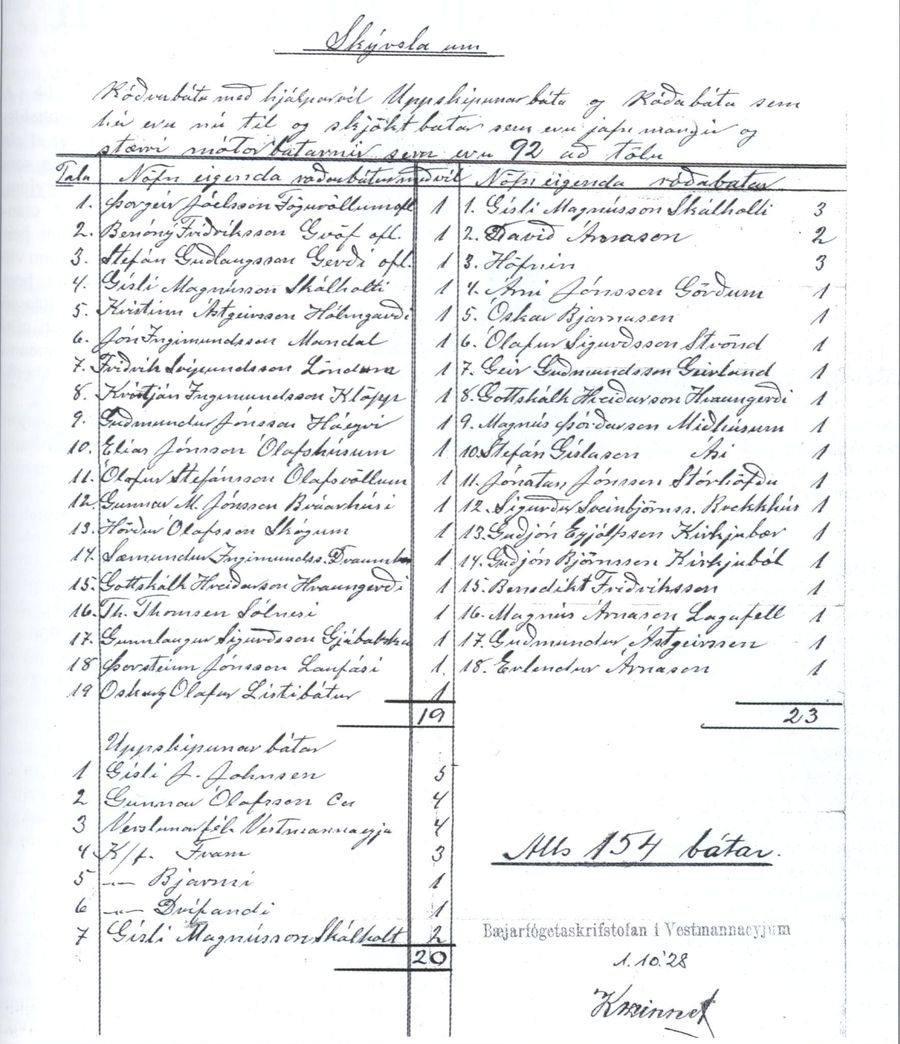 Skýrsla um
Róðrabáta með hjálparvél Uppskipunarbáta og Róðabáta sem
hér eru nú til og skjökt batar sem eru jafn margir og
stærri mótorbatarnir sem eru 92 að tölu
Tala Nöfn eigenda róðarbátur með vél Nöfn eigenda róðabatar
1. Þorgeir Jóelsson Fögruvöllum ofl 1
2. Benóný Friðriksson Gröf ofl. 1
3. Stefán Guðlaugsson Gerði ofl. 1
4. Gísli Magnússon Skálholti 1
5. Kristinn Ástgeirsson Hólmgarði 1
6. Jón Ingimundsson Mandal 1
7. Friðrik Svipmundsson Löndum 1
8. Kristján Ingimundsson Klöpp 1
9. Guðmundur Jónsson Háeyri 1
10. Elías Jónsson Ólafshúsum 1
11. Ólafur Stefánsson Olafsvöllum 1
12. Gunnar M. Jónsson Brúarhúsi 1
13. Hörður Olafsson Skógum 1
14. Sæmundur Ingimundss. 1
15. Gottskálk Hreiðarson Hraungerði 1
16. Th. Thomsen Sólnesi 1
17. Gunnlaugur Sigurðsson Gjábakka 1
18 Þorsteinn Jónsson Laufási 1
19 Oskar og Olafur Listibátur 1
19
1. Gísli Magnússon Skálholti 3
2. Davið Árnason 2
3. Höfnin 3
4. Árni Jónsson Görðum 1
5. Óskar Bjarnasen 1
6. Ólafur Sigurðsson Strönd 1
7. Geir Guðmundsson Geirland 1
8. Gottskálk Hreiðarson Hraungerði 1
9. Magnús Þórðarson Miðhúsum 1
10. Stefán Gíslason Ási 1
11. Jónatan Jónsson Stórhöfða 1
12. Sigurður Sveinbjörnss. Brekkhús 1
13. Guðjón Eyjólfsson Kirkjubær 1
14. Guðjón Björnsson Kirkjuból 1
15. Benedikt Friðriksson 1
16. Magnús Árnason Lagafell 1
17. Guðmundur Ástgeirssen 1
18. Erlendur Árnason 1
23
Uppskipunarbátar
1 Gísli J. Johnsen 5
2 Gunnar Ólafsson Co 4
3 Verslunarfél. Vestmannaeyja 4
4 K/f. Fram 3
5 -"- Bjarmi 1
6 -"- Drífandi 1
7 Gísli Magnússon Skálholt 2
20
Alls 154 bátar.
Bæjarfógetaskrifstofan í Vestmannaeyjum
1.10.'28